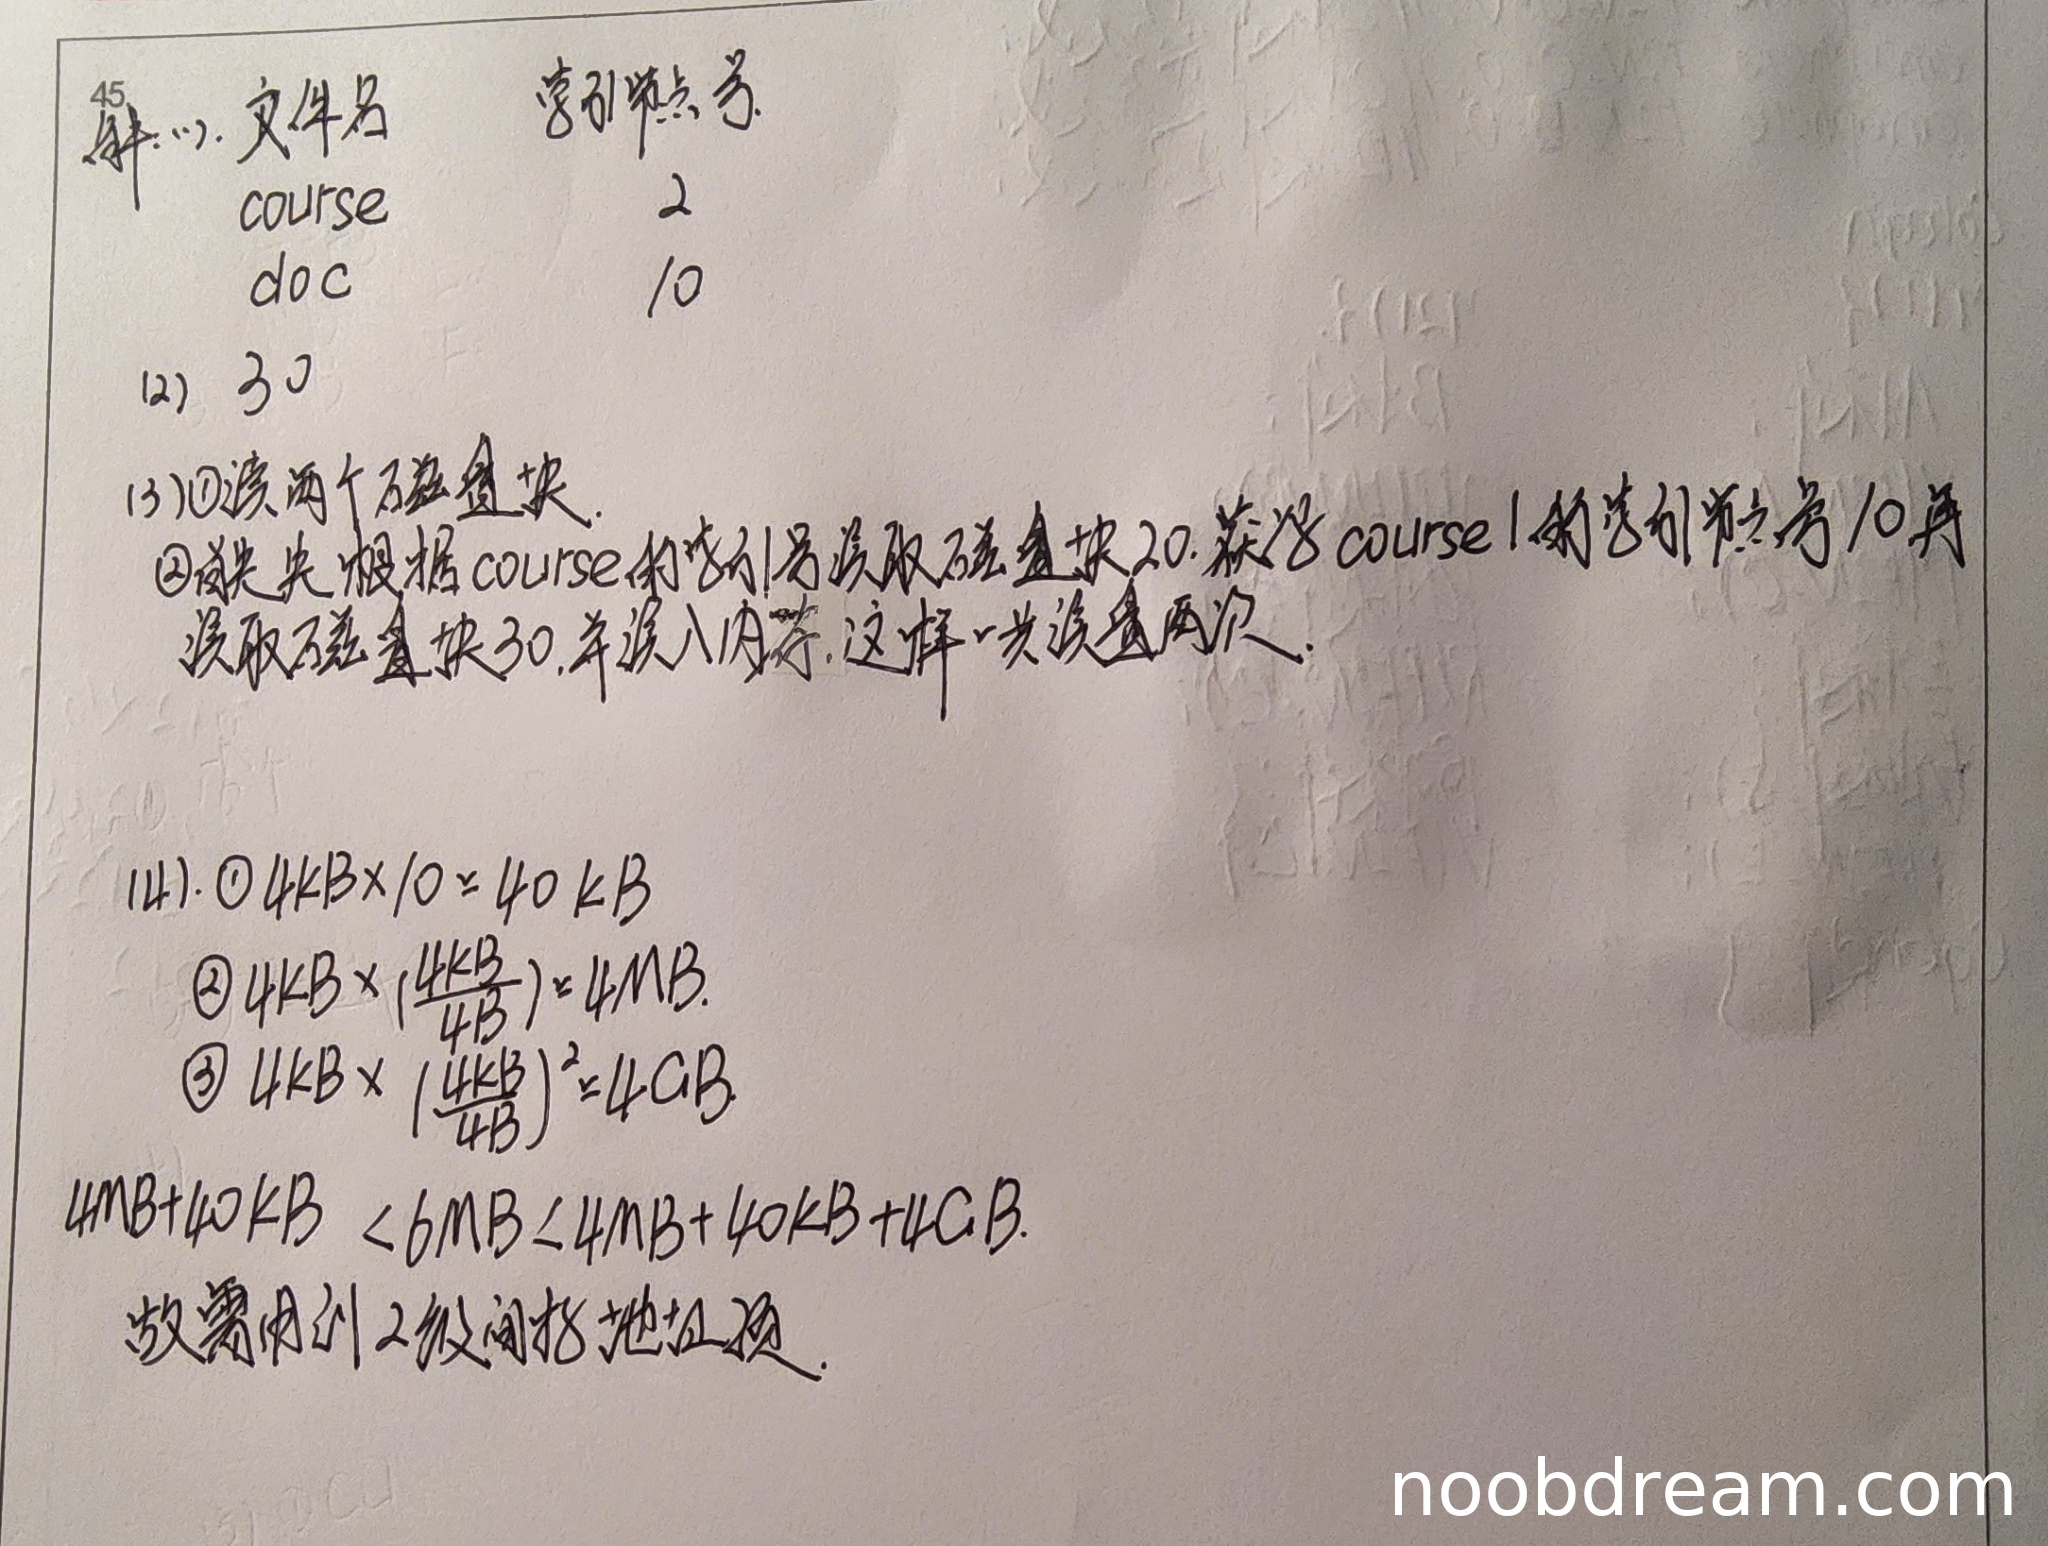 45
解:(1). 文件名 索引节点号.
course 2
doc 10
(2) 30
(3)①读两个磁盘块.
②首先根据course的索引号读取磁盘块20.获得course1的索引节点号10再
读取磁盘块30.并读入内存.这样一共读盘两次.
(4).①4KB×10=40KB
②4KB×(4KB/4B)=4MB.
③4KB×(4KB/4B)²=4GB.
4MB+40KB<6MB<4MB+40KB+4GB.
故需用到2级间接地址项.
noobdream.com